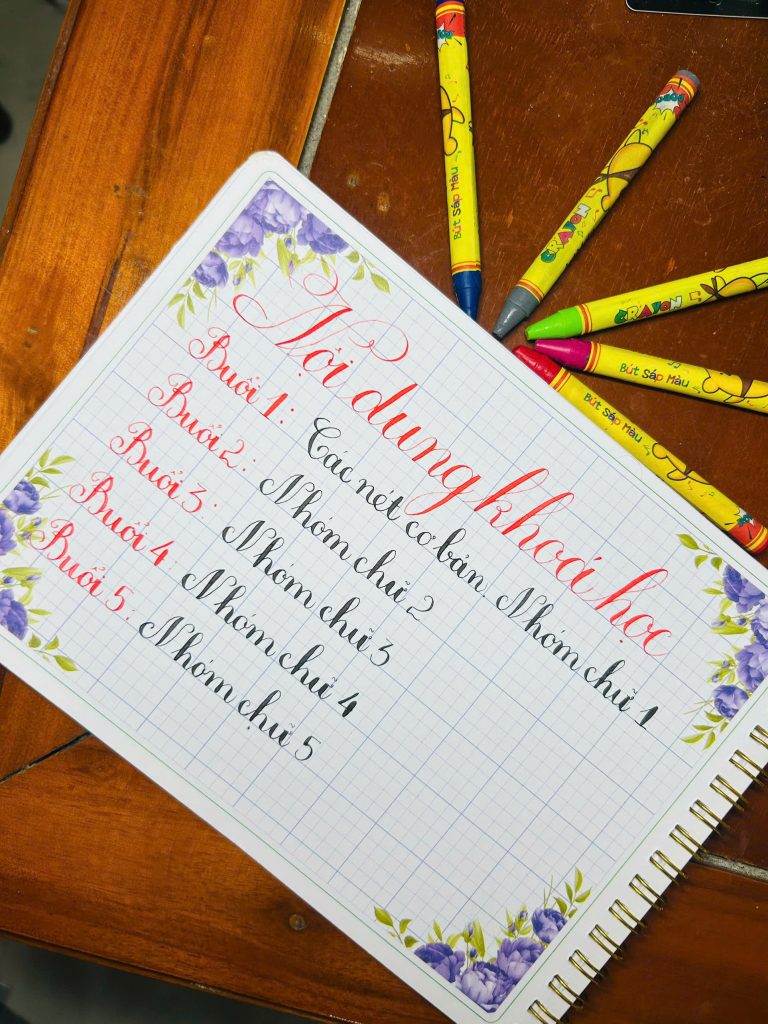 Nội dung khoá học
Buổi 1: Các nét cơ bản. Nhóm chữ 1
Buổi 2: Nhóm chữ 2
Buổi 3: Nhóm chữ 3
Buổi 4: Nhóm chữ 4
Buổi 5: Nhóm chữ 5
Bút Sáp Màu
CRAYON
CRAYON
Bút Sáp Màu
Bút Sáp Màu